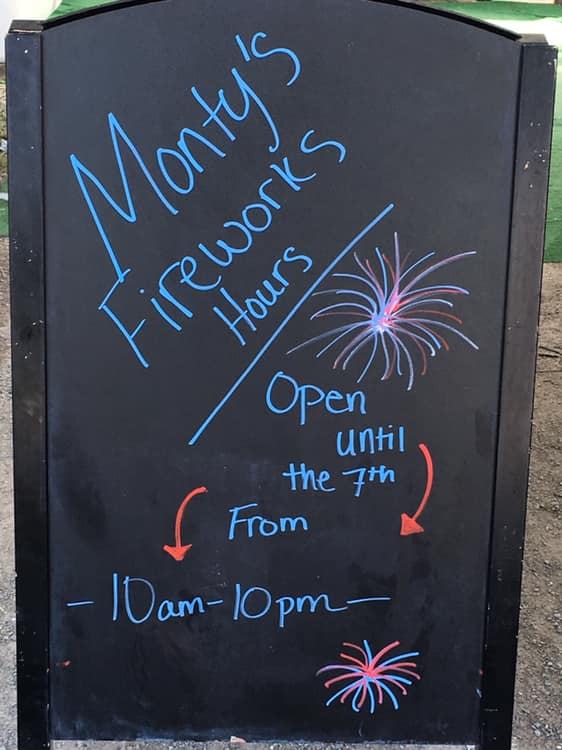 Monty's
Fireworks
Hours
Open
until
the 7th
From
- 10am-10pm -